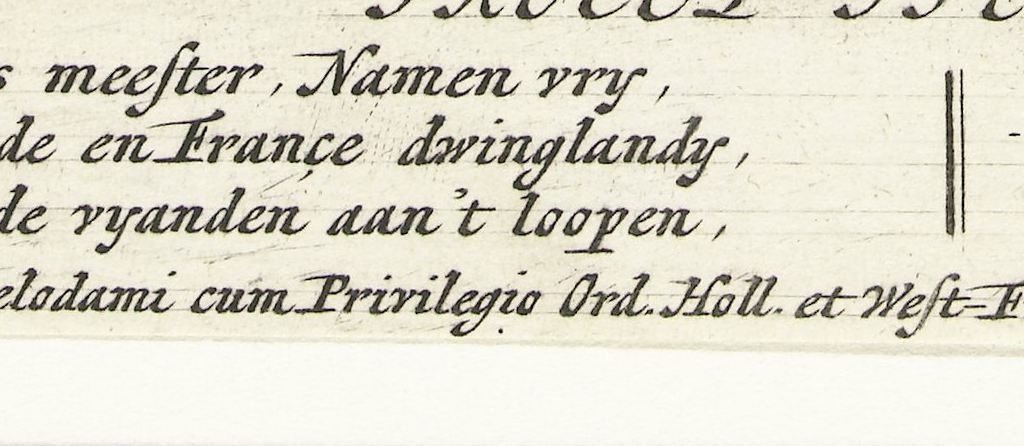 meeſter, Namen vry,
de en Françe dwinglandy,
de vyanden aan't loopen,
elodami cum Privilegio Ord. Holl. et Weſt-F